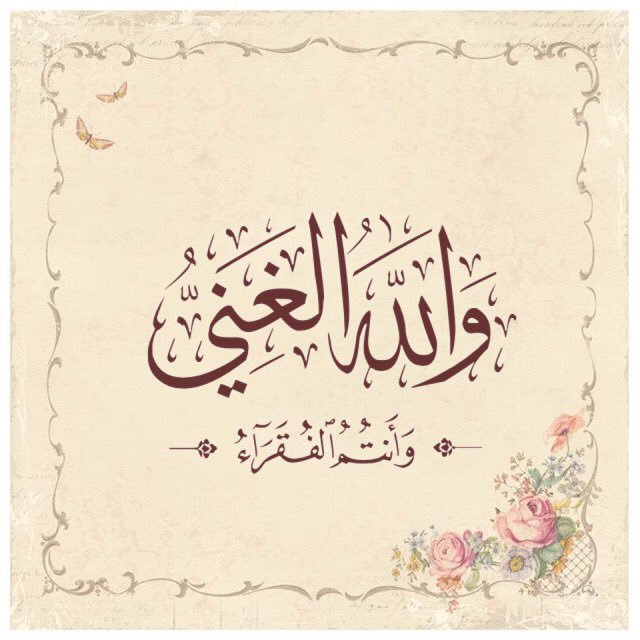 وَاللَّهُ الْغَنِيُّ
وَأَنتُمُ ٱلْفُقَرَآءُ